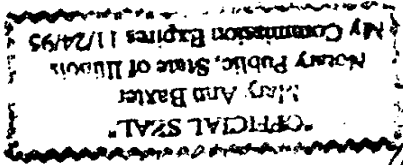 "OFFICIAL SEAL"
Mary Ann Baxter
Notary Public, State of Illinois
My Commission Expires 11/24/95